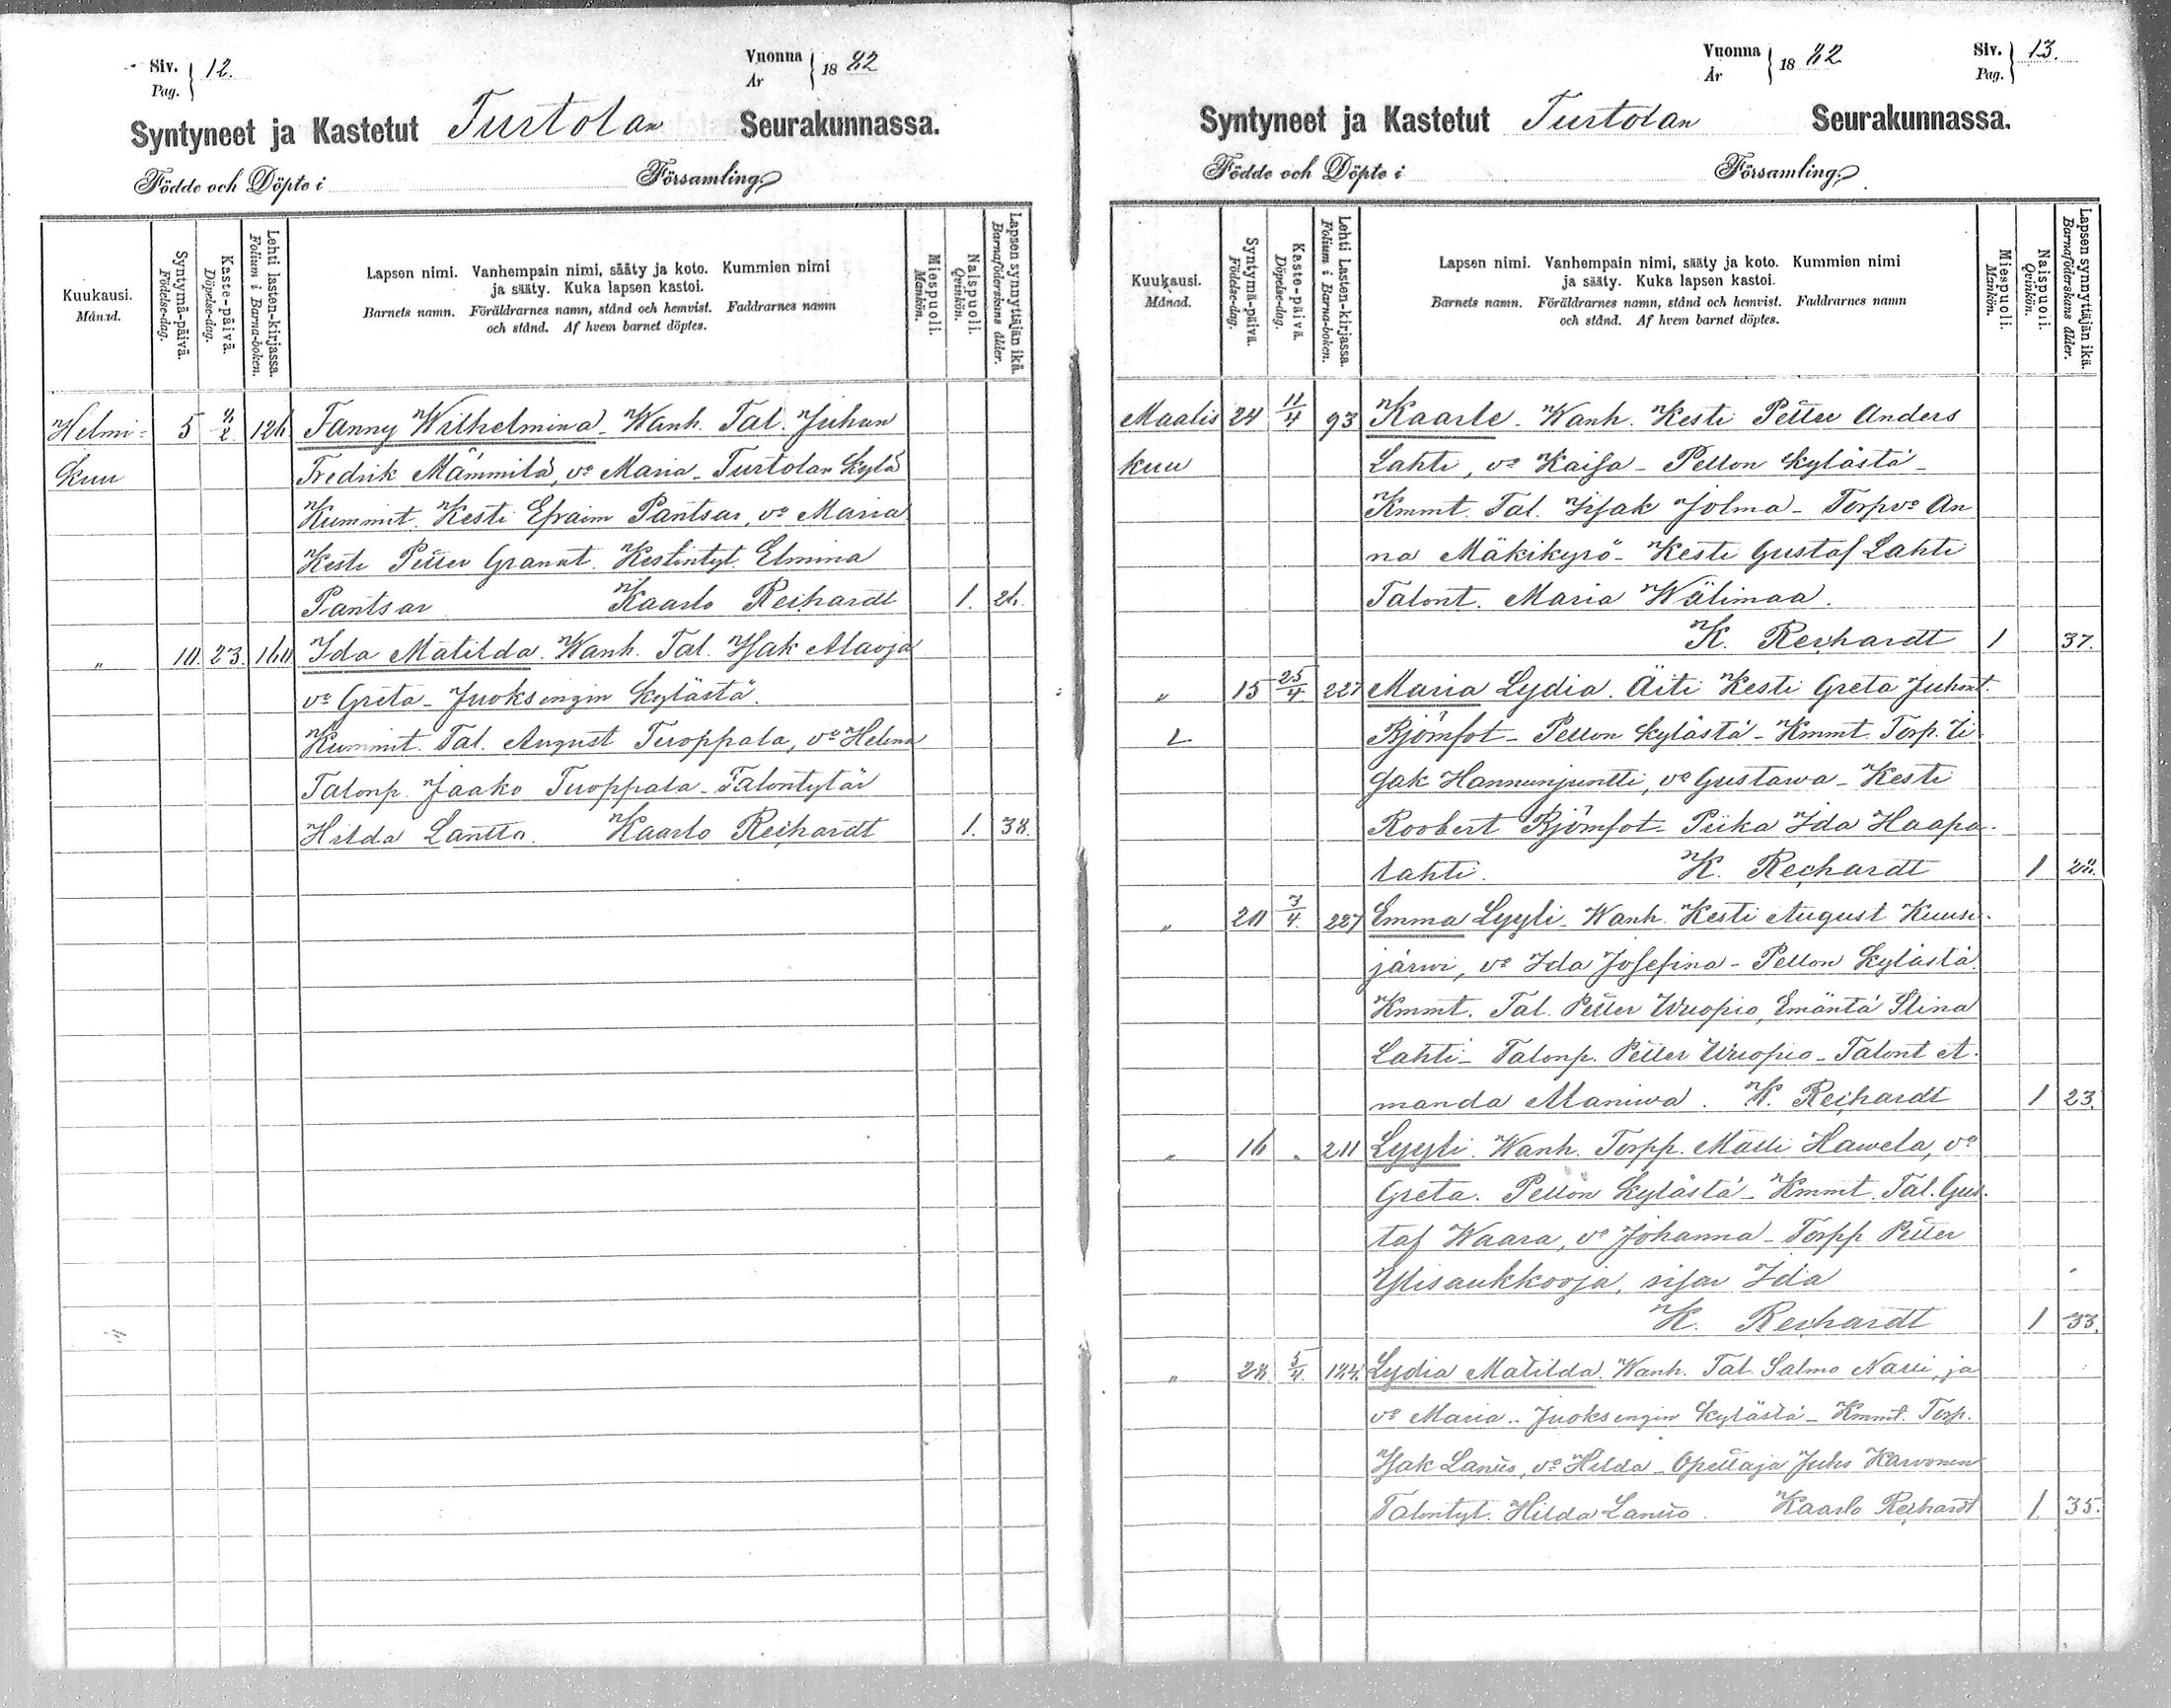 Siv. 12.
Pag.
Vuonna 1882
År
Syntyneet ja Kastetut Turtolan Seurakunnassa.
Födde och Döpte i Församling.
Kuukausi.
Månad.
Syntymä-päivä.
Födelse-dag.
Kaste-päivä.
Döpelse-dag.
Lehti lasten-kirjassa.
Folium i Barna-boken.
Lapsen nimi. Vanhempain nimi, sääty ja koto. Kummien nimi
ja sääty. Kuka lapsen kastoi.
Barnets namn. Föräldrarnes namn, stånd och hemvist. Faddrarnes namn
och stånd. Af hvem barnet döptes.
Miespuoli.
Mankön.
Naispuoli.
Qvinkön.
Lapsen synnyttäjän ikä.
Barnaföderskans ålder.
Helmi- 5 Fanny Wilhelmina. Wanh. Tal. Juhan
kuu Fredrik Mämmilä, vo Maria. Turtolan kylä
Kummit. Kesti Efraim Pantsar, vo Maria
Kesti Petter Granat. Kestintyt. Elmina
Pantsar Kaarlo Rechardt 1.
" 10. 23. 160 Ida Matilda. Wanh. Tal. Isak Alaoja
vo Greta. Juoksengin kylästä.
Kummit. Tal. August Tuoppala, vo Helena
Talonp. Jaako Tuoppala. Talontytär
Hilda Lantto. Kaarlo Rechardt 1. 38.
Vuonna 1882
År
Siv. 13.
Pag.
Syntyneet ja Kastetut Turtolan Seurakunnassa.
Födde och Döpte i Församling.
Kuukausi.
Månad.
Syntymä-päivä.
Födelse-dag.
Kaste-päivä.
Döpelse-dag.
Lehti Lasten-kirjassa.
Folium i Barna-boken.
Lapsen nimi. Vanhempain nimi, sääty ja koto. Kummien nimi
ja sääty. Kuka lapsen kastoi.
Barnets namn. Föräldrarnes namn, stånd och hemvist. Faddrarnes namn
och stånd. Af hvem barnet döptes.
Miespuoli.
Mankön.
Naispuoli.
Qvinkön.
Lapsen synnyttäjän ikä.
Barnaföderskans ålder.
Maalis 24 11/4 93 Kaarle. Wanh. Kesti Petter Anders
kuu Lahti, vo Kaisa - Pellon kylästä -
Kmmt. Tal. Iisak Jolma - Torp vo An
na Mäkikyrö - Kesti Gustaf Lahti
Talont. Maria Wälimaa.
K. Rechardt 1 37.
" 15 25/4. 227 Maria Lydia. Äiti Kesti Greta Juhont.
Björnfot - Pellon kylästä - Kmmt. Torp. Ii
sak Hannunjuntti, vo Gustawa - Kesti
Roobert Björnfot - Piika Ida Haapa-
lahti. K. Rechardt 1
" 20 3/4. 227 Emma Lyyli. Wanh. Kesti August Kuusi-
järwi, vo Ida Josefina - Pellon kylästä
Kmmt. Tal. Petter Wuopio, Emäntä Stina
Lahti - Talonp. Petter Wuopio - Talont. A-
manda Maniwa. K. Rechardt 1 23.
" 16 " 211 Lyyli. Wanh. Torpp. Matti Hawela, vo
Greta. Pellon kylästä - Kmmt. Tal. Gus-
taf Waara, vo Johanna - Torpp. Petter
Ylisaukkooja, sisar Ida
K. Rechardt 1 33.
" 5/4. Lydia Matilda. Wanh. Tal. Salmo Narri, ja
vo Maria - Juoksengin kylästä - Kmmt. Torp.
Isak vo Hilda - Opettaja Juho Karvonen
Talontyt. Hilda Kaarlo Rechardt 1 35.